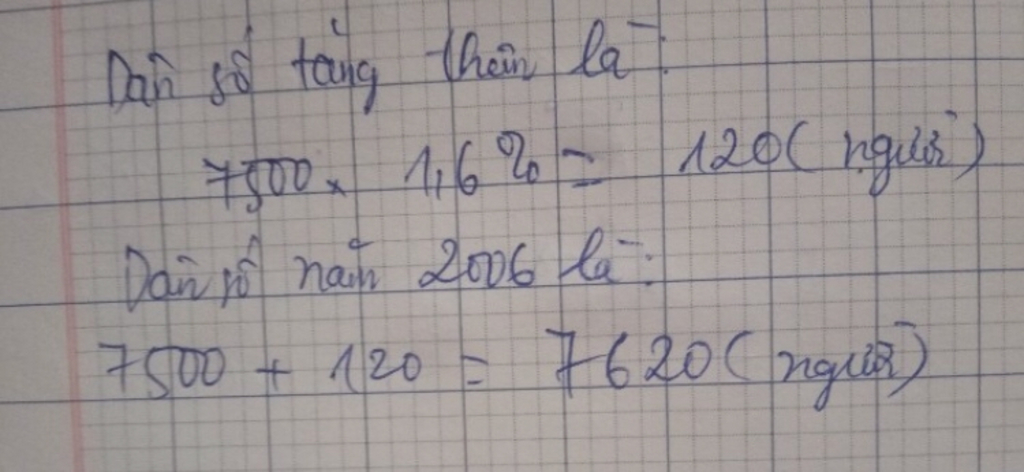 Dân số tăng thêm là:
7500 x 1,6% = 120 (người)
Dân số năm 2006 là:
7500 + 120 = 7620 (người)